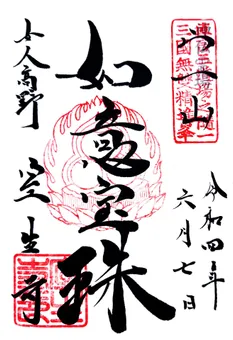 宀一山
令和四年
六月七日
如意宝珠
女人高野
室生寺